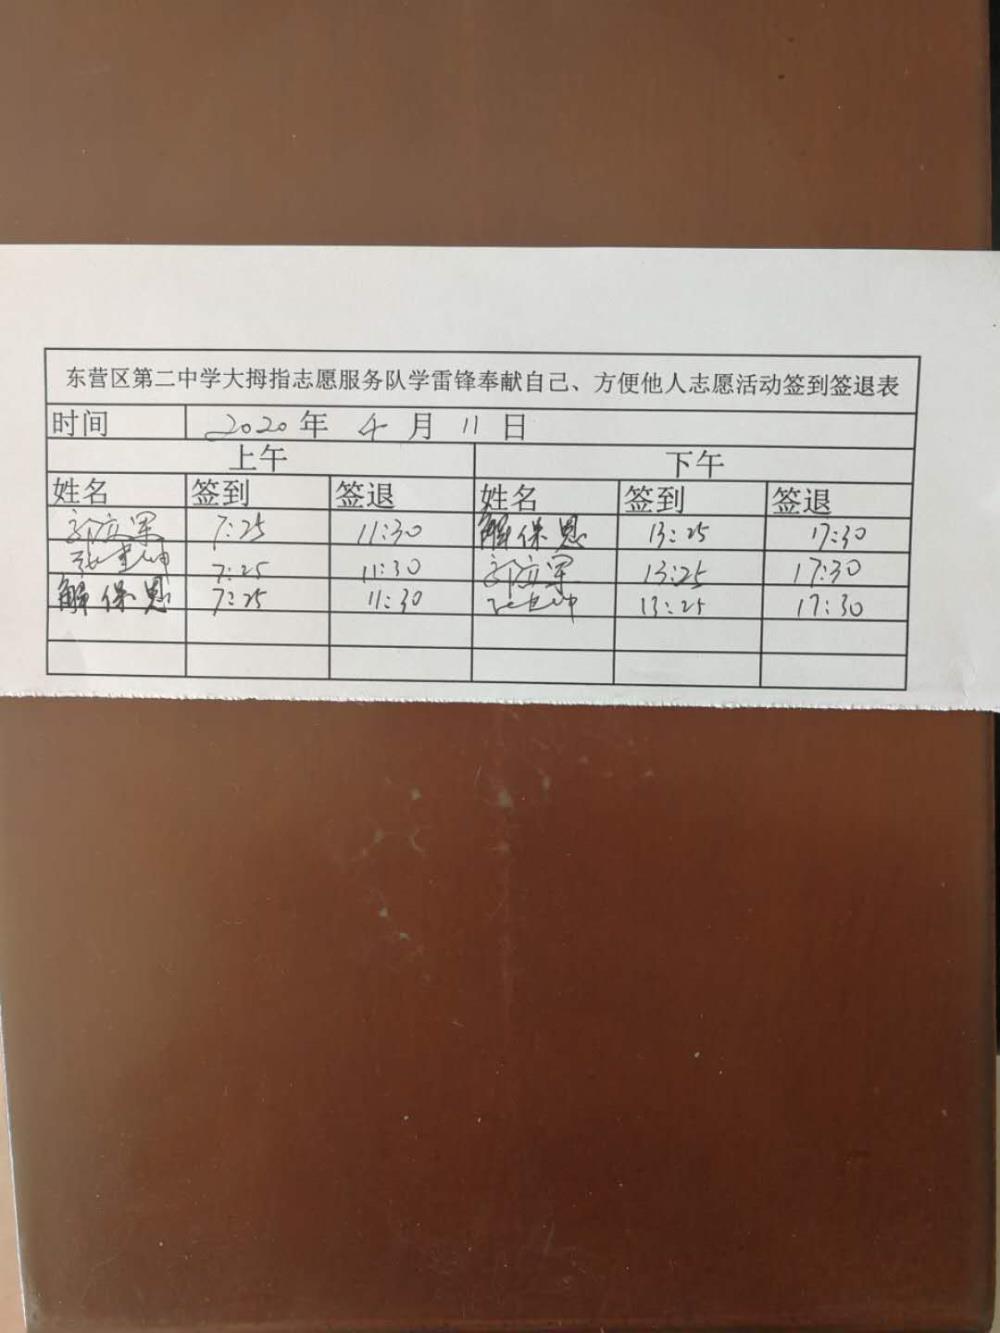 东营区第二中学大拇指志愿服务队学雷锋奉献自己、方便他人志愿活动签到签退表
时间 2020年 4 月 11 日
上午 下午
姓名 签到 签退 姓名 签到 签退
7:25 11:30 解保恩 13:25 17:30
7:25 11:30 13:25 17:30
解保恩 7:25 11:30 13:25 17:30